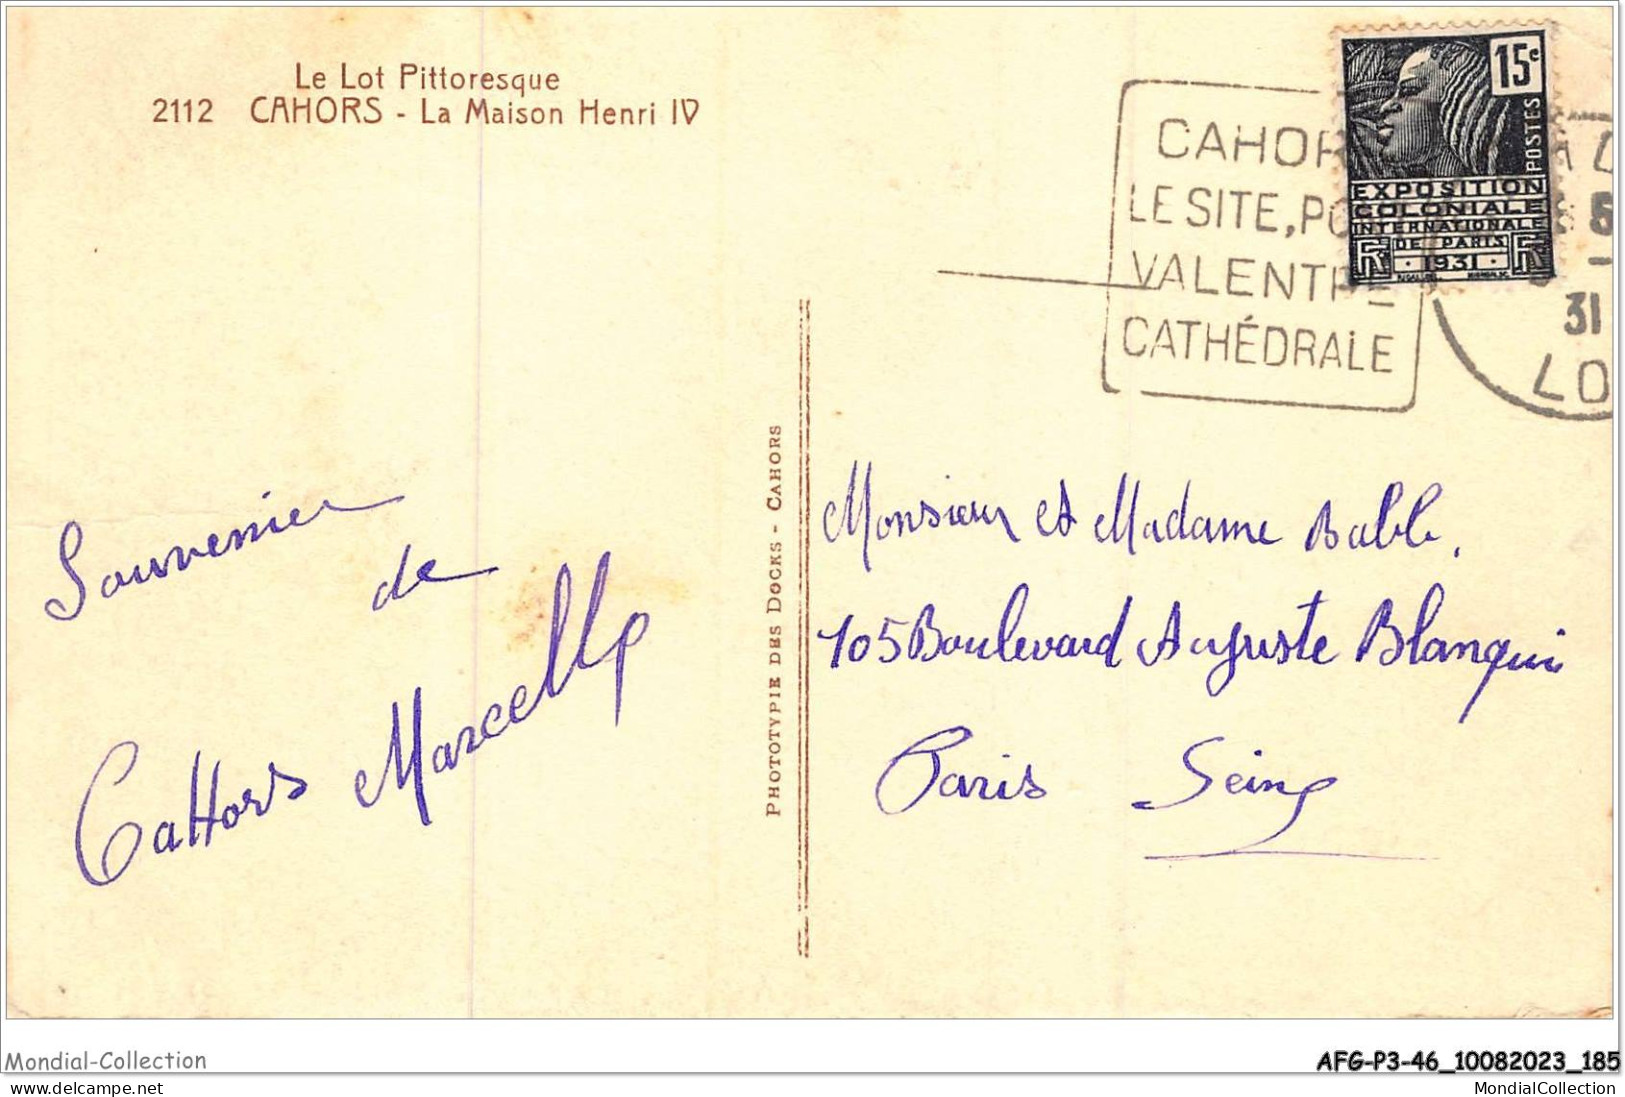 Le Lot Pittoresque
2112 CAHORS - La Maison Henri IV
15c
POSTES
EXPOSITION
COLONIALE
INTERNATIONALE
DE PARIS
RF 1931 RF
CAHOR
LE SITE, PO
VALENTRE
CATHÉDRALE
31
LO
Souvenier
de
CaHors Marcelle
PHOTOTYPIE DES DOCKS - CAHORS
Monsieur et Madame
105 Boulevard Auguste Blanqui
Paris Seine
Mondial-Collection
AFG-P3-46_10082023_185
www.delcampe.net
MondialCollection